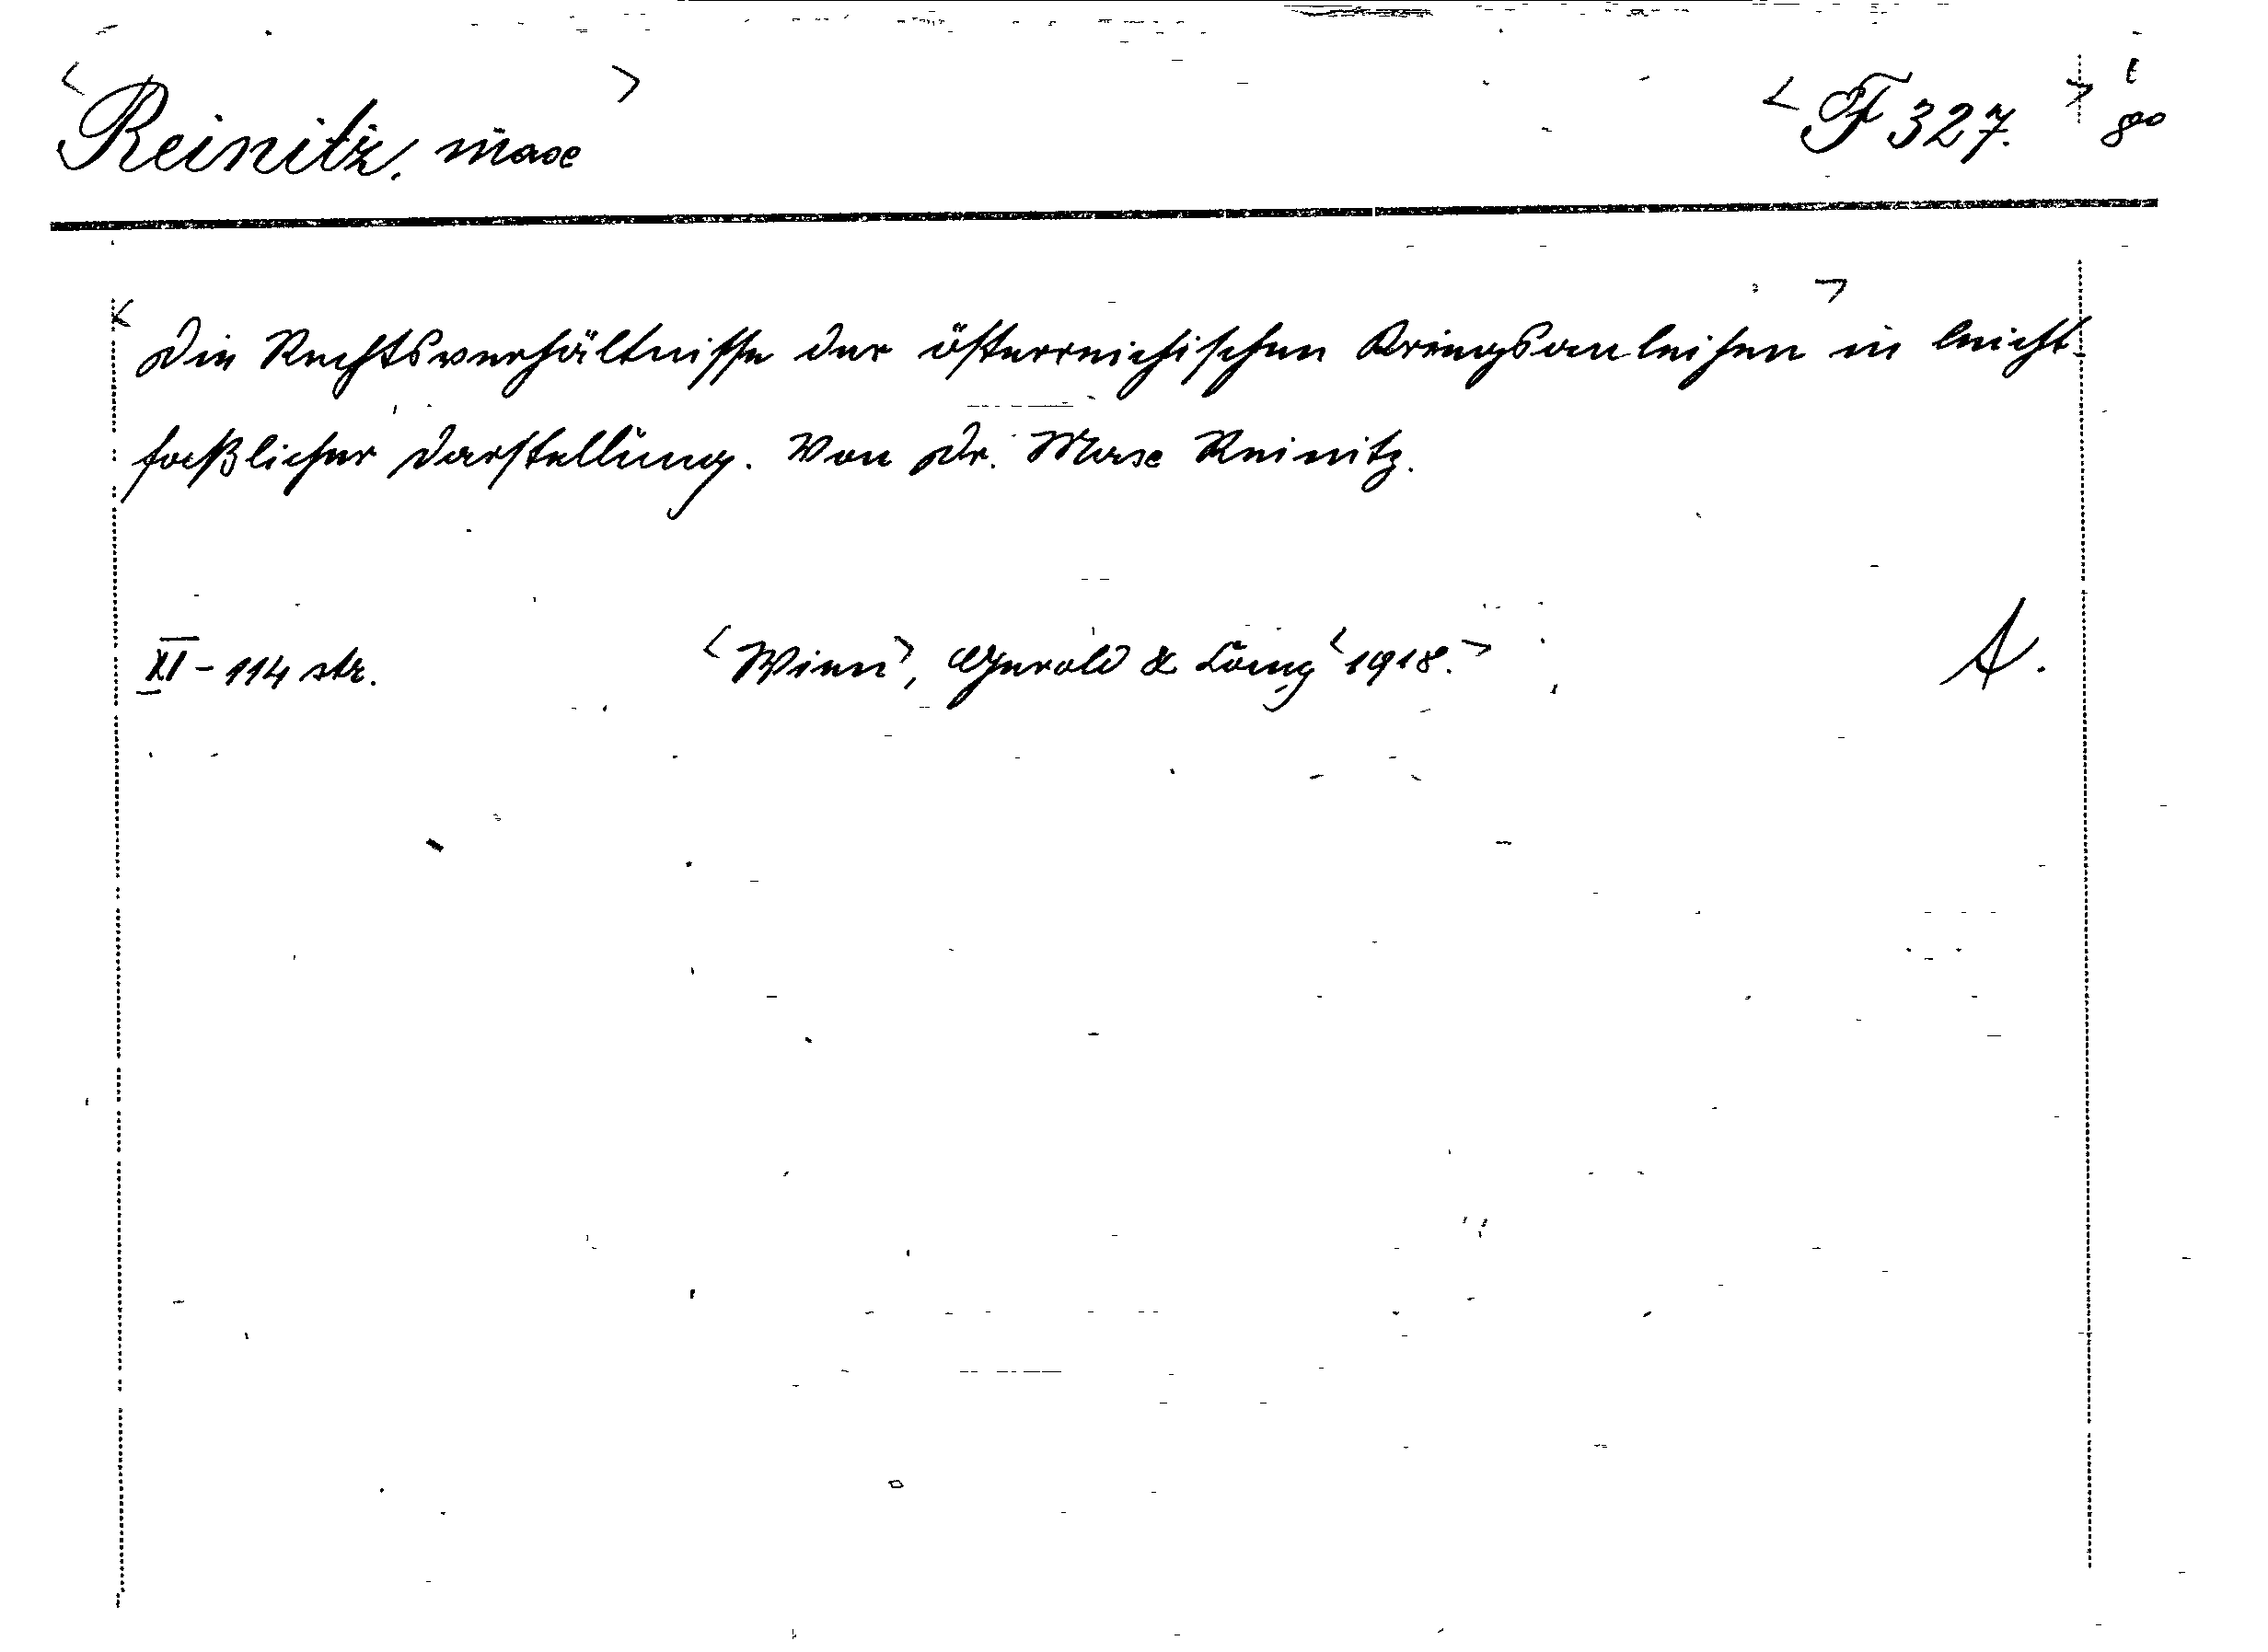 <Reinitz, Max> <F 327.> t
8°
<Die Rechtsverhältnisse der österreichischen Kriegsanleihen> in leicht-
faßlicher Darstellung. Von Dr. Max Reinitz.
XI - 114 str. <Wien>, Gerold & Comp <1918.> A.